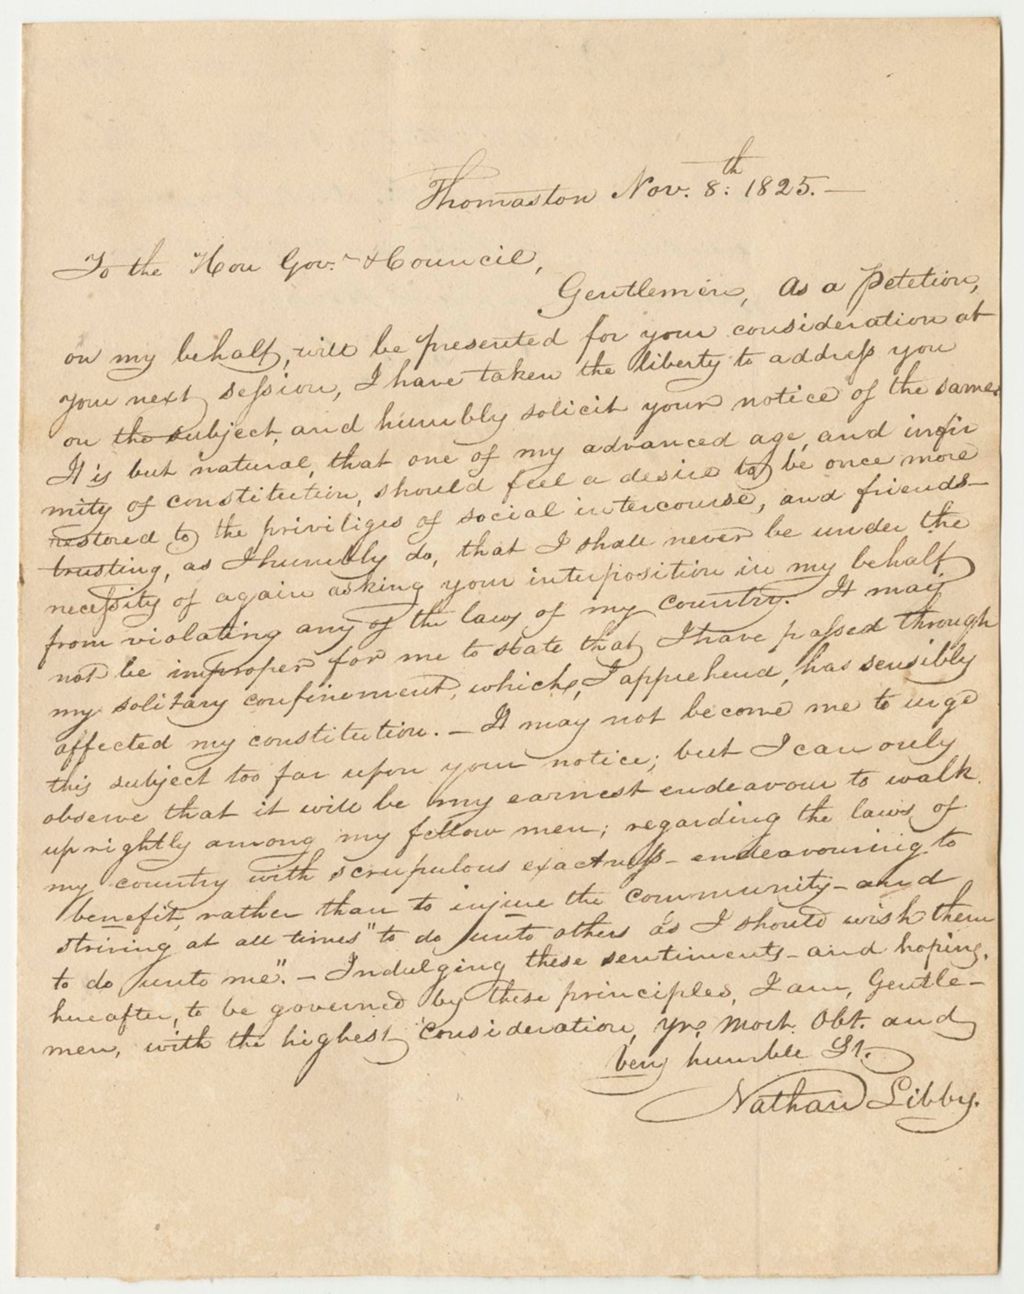 Thomaston Nov. 8th: 1825.—
To the Hon Gov.r & Council,
Gentlemen, As a Petetion,
on my behalf, will be presented for your consideration at
your next session, I have taken the liberty to address you
on the subject, and humbly solicit your notice of the same.
It is but natural, that one of my advanced age, and infir
mity of constitution, should feel a desire to be once more
restored to the priviliges of social intercourse, and friends—
trusting, as I humbly do, that I shall never be under the
necessity of again asking your interposition in my behalf
from violating any of the laws of my country. It may
not be improper for me to state that I have passed through
my solitary confinement, which, I apprehend, has sensibly
affected my constitution. — It may not become me to urge
this subject too far upon your notice; but I can only
observe that it will be my earnest endeavour to walk
uprightly among my fellow men; regarding the laws of
my country with scrupulous exactness— endeavouring to
benefit, rather than to injure the community— and
striving at all times "to do unto others as I should wish them
to do unto me". — Indulging these sentiments— and hoping,
hereafter, to be governed by these principles, I am, Gentle—
men, with the highest consideration, Yrs. Most. Obt. and
very humble St.
Nathan Libby.